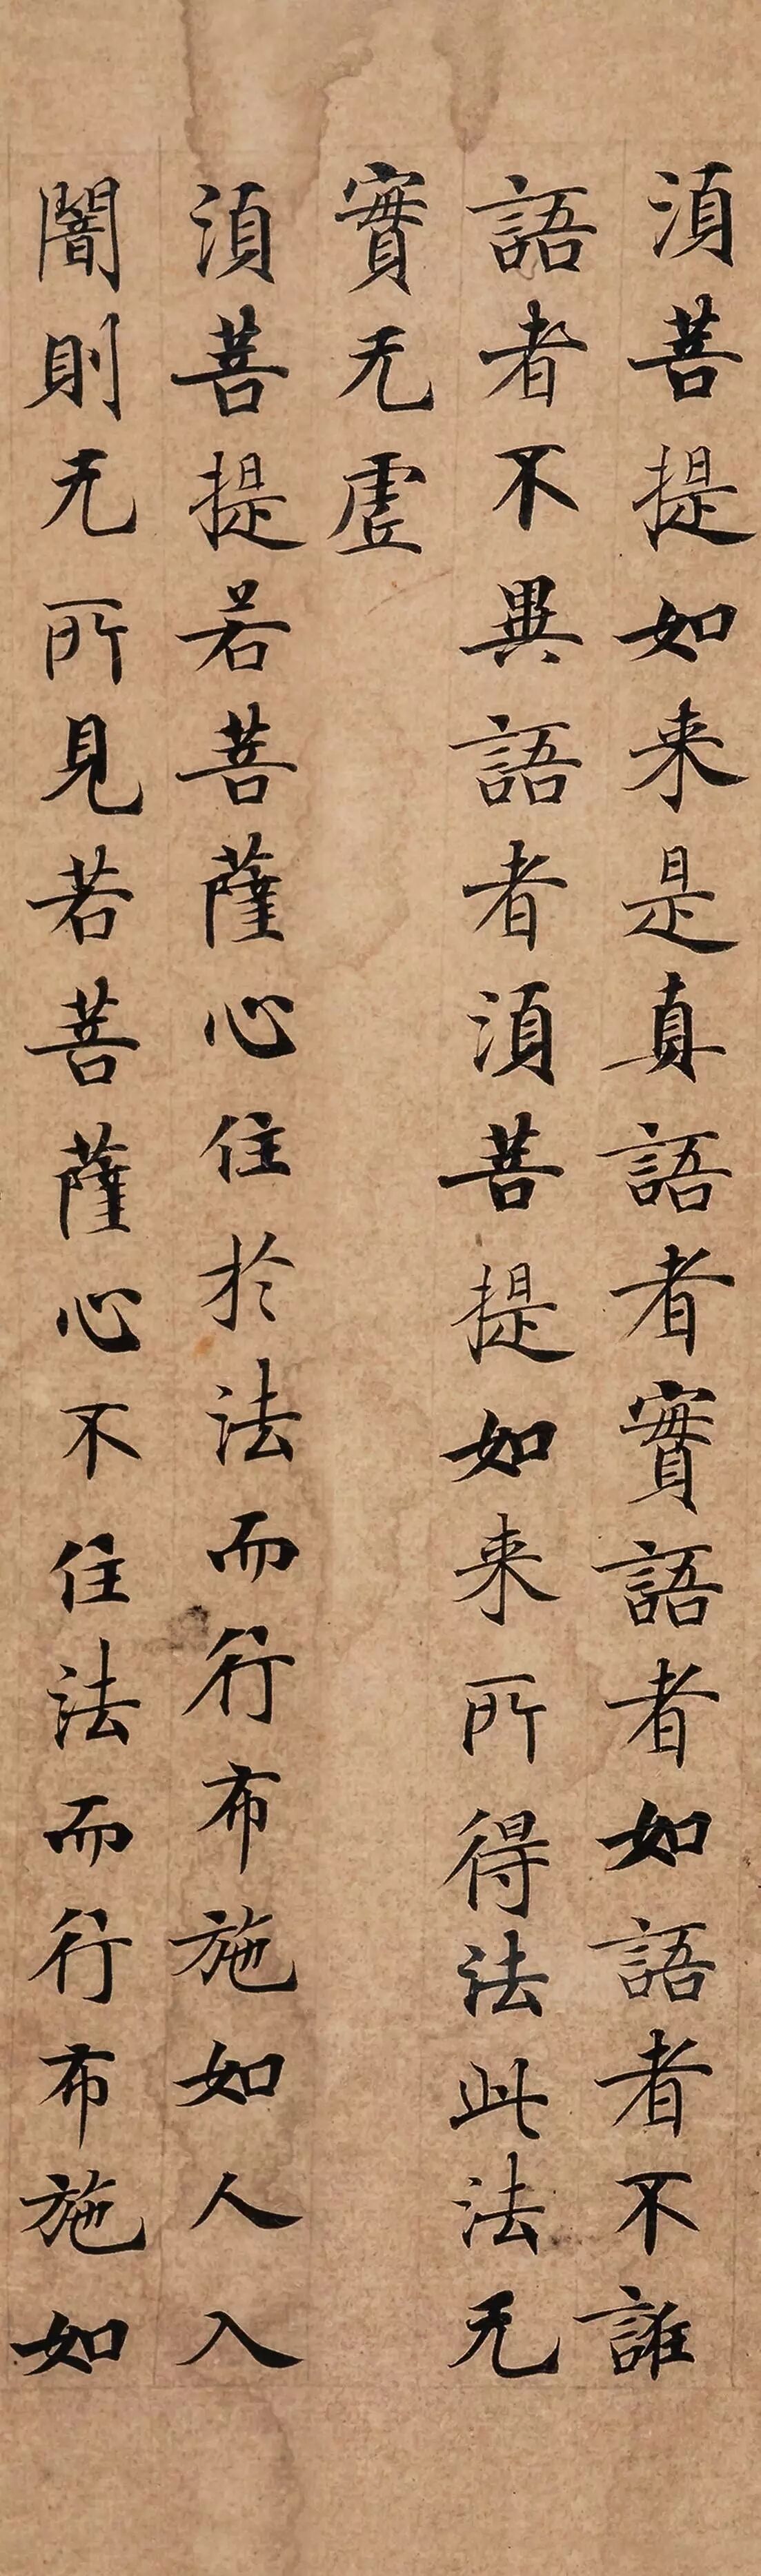 須菩提如来是真語者實語者如語者不誰
語者不異語者須菩提如来所得法此法无
實无虛
須菩提若菩薩心住於法而行布施如人入
闇則无所見若菩薩心不住法而行布施如